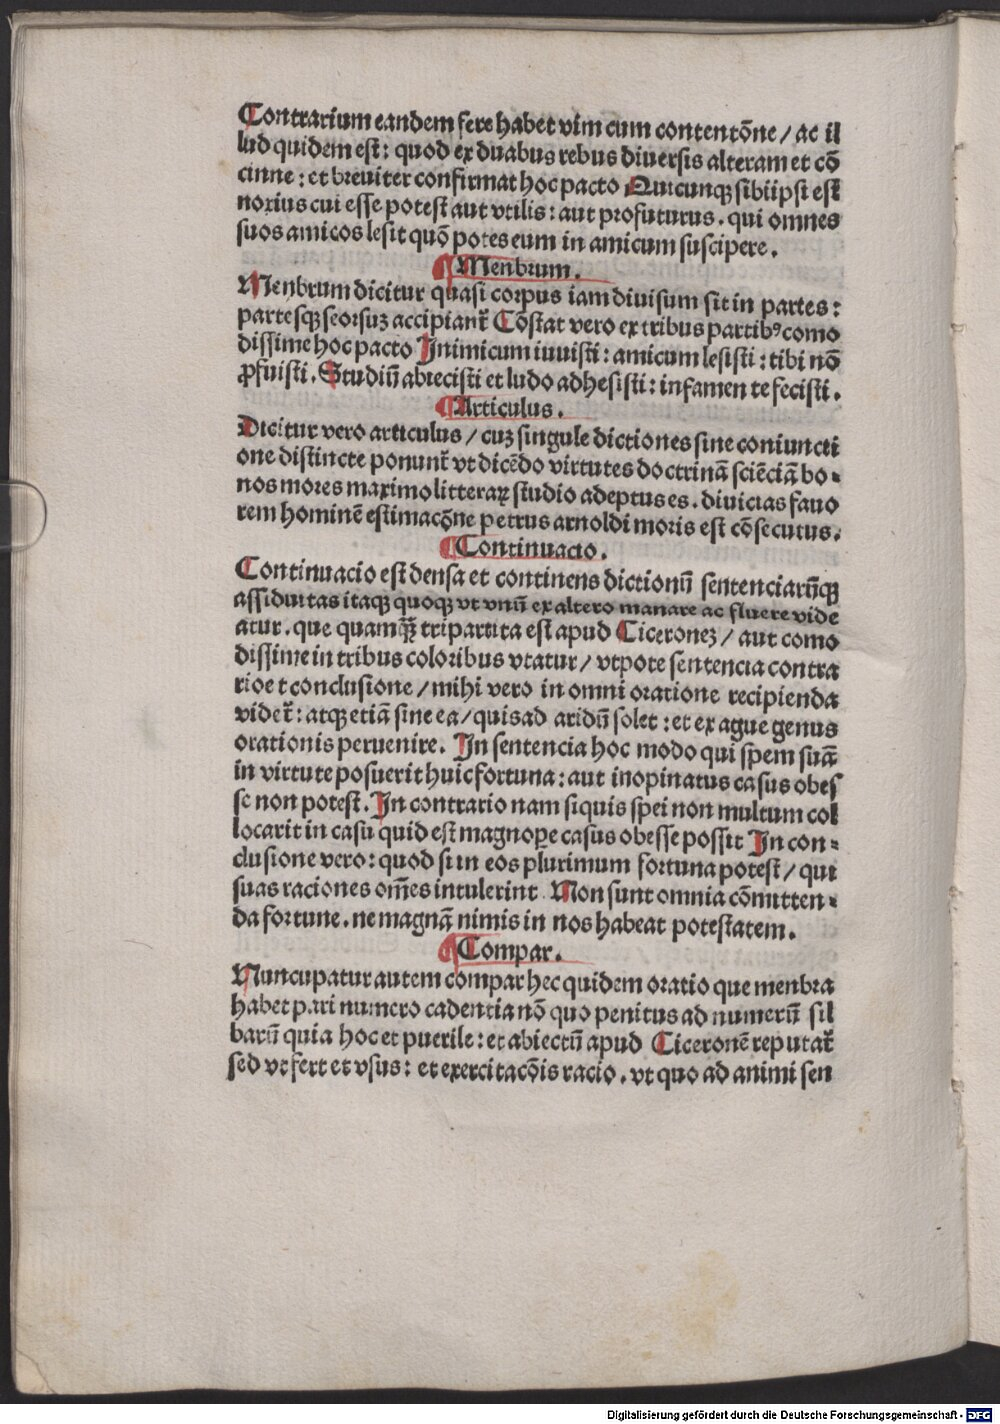 Contrarium eandem fere habet vim cum contentōne / ac il
lud quidem est : quod ex duabus rebus diuersis alteram et cō
cinne : et breuiter confirmat hoc pacto Quicunqꝫ sibiipsi est
noxius cui esse potest aut vtilis : aut profuturus . qui omnes
suos amicos lesit quō potes eum in amicum suscipere .
¶ Menbrum .
Menbrum dicitur quasi corpus iam diuisum sit in partes :
partesqꝫ seorsuꝫ accipiant᷑ Cōstat vero ex tribus partibꝰ como
dissime hoc pacto Inimicum iuuisti : amicum lesisti : tibi nō
ꝓfuisti . Studiū abiecisti et ludo adhesisti : infamen te fecisti .
¶ Articulus .
Dicitur vero articulus / cuꝫ singule dictiones sine coniuncti
one distincte ponunt᷑ vt dicēdo virtutes doctrinā sciēciā bo⸗
nos mores maximo litteraꝝ studio adeptus es . diuicias fauo
rem hominē estimacōne petrus arnoldi moris est cōsecutus .
¶ Continuacio .
Continuacio est densa et continens dictionū sentenciarūqꝫ
assiduitas itaqꝫ quoqꝫ vt vnū ex altero manare ac fluere vide
atur . que quamqꝫ̄ tripartita est apud Ciceroneꝫ / aut como
dissime in tribus coloribus vtatur / vtpote sentencia contra
rio et conclusione / mihi vero in omni oratione recipienda
videt᷑ : atqꝫ etiā sine ea / quis ad aridū solet : et ex ague genus
orationis peruenire . In sentencia hoc modo qui spem suā
in virtute posuerit huic fortuna : aut inopinatus casus obes
se non potest . In contrario nam siquis spei non multum col
locarit in casu quid est magnoꝑe casus obesse possit In con⸗
clusione vero : quod si in eos plurimum fortuna potest / qui
suas raciones om̄es intulerint Non sunt omnia cōmitten⸗
da fortune . ne magnā nimis in nos habeat potestatem .
¶ Compar .
Nuncupatur autem compar hec quidem oratio que menbra
habet pari numero cadentia nō quo penitus ad numerū sil
barū quia hoc et puerile : et abiectū apud Ciceronē reputat᷑
sed vt fert et vsus : et exercitacōis racio . vt quo ad animi sen
Digitalisierung gefördert durch die Deutsche Forschungsgemeinschaft - DFG